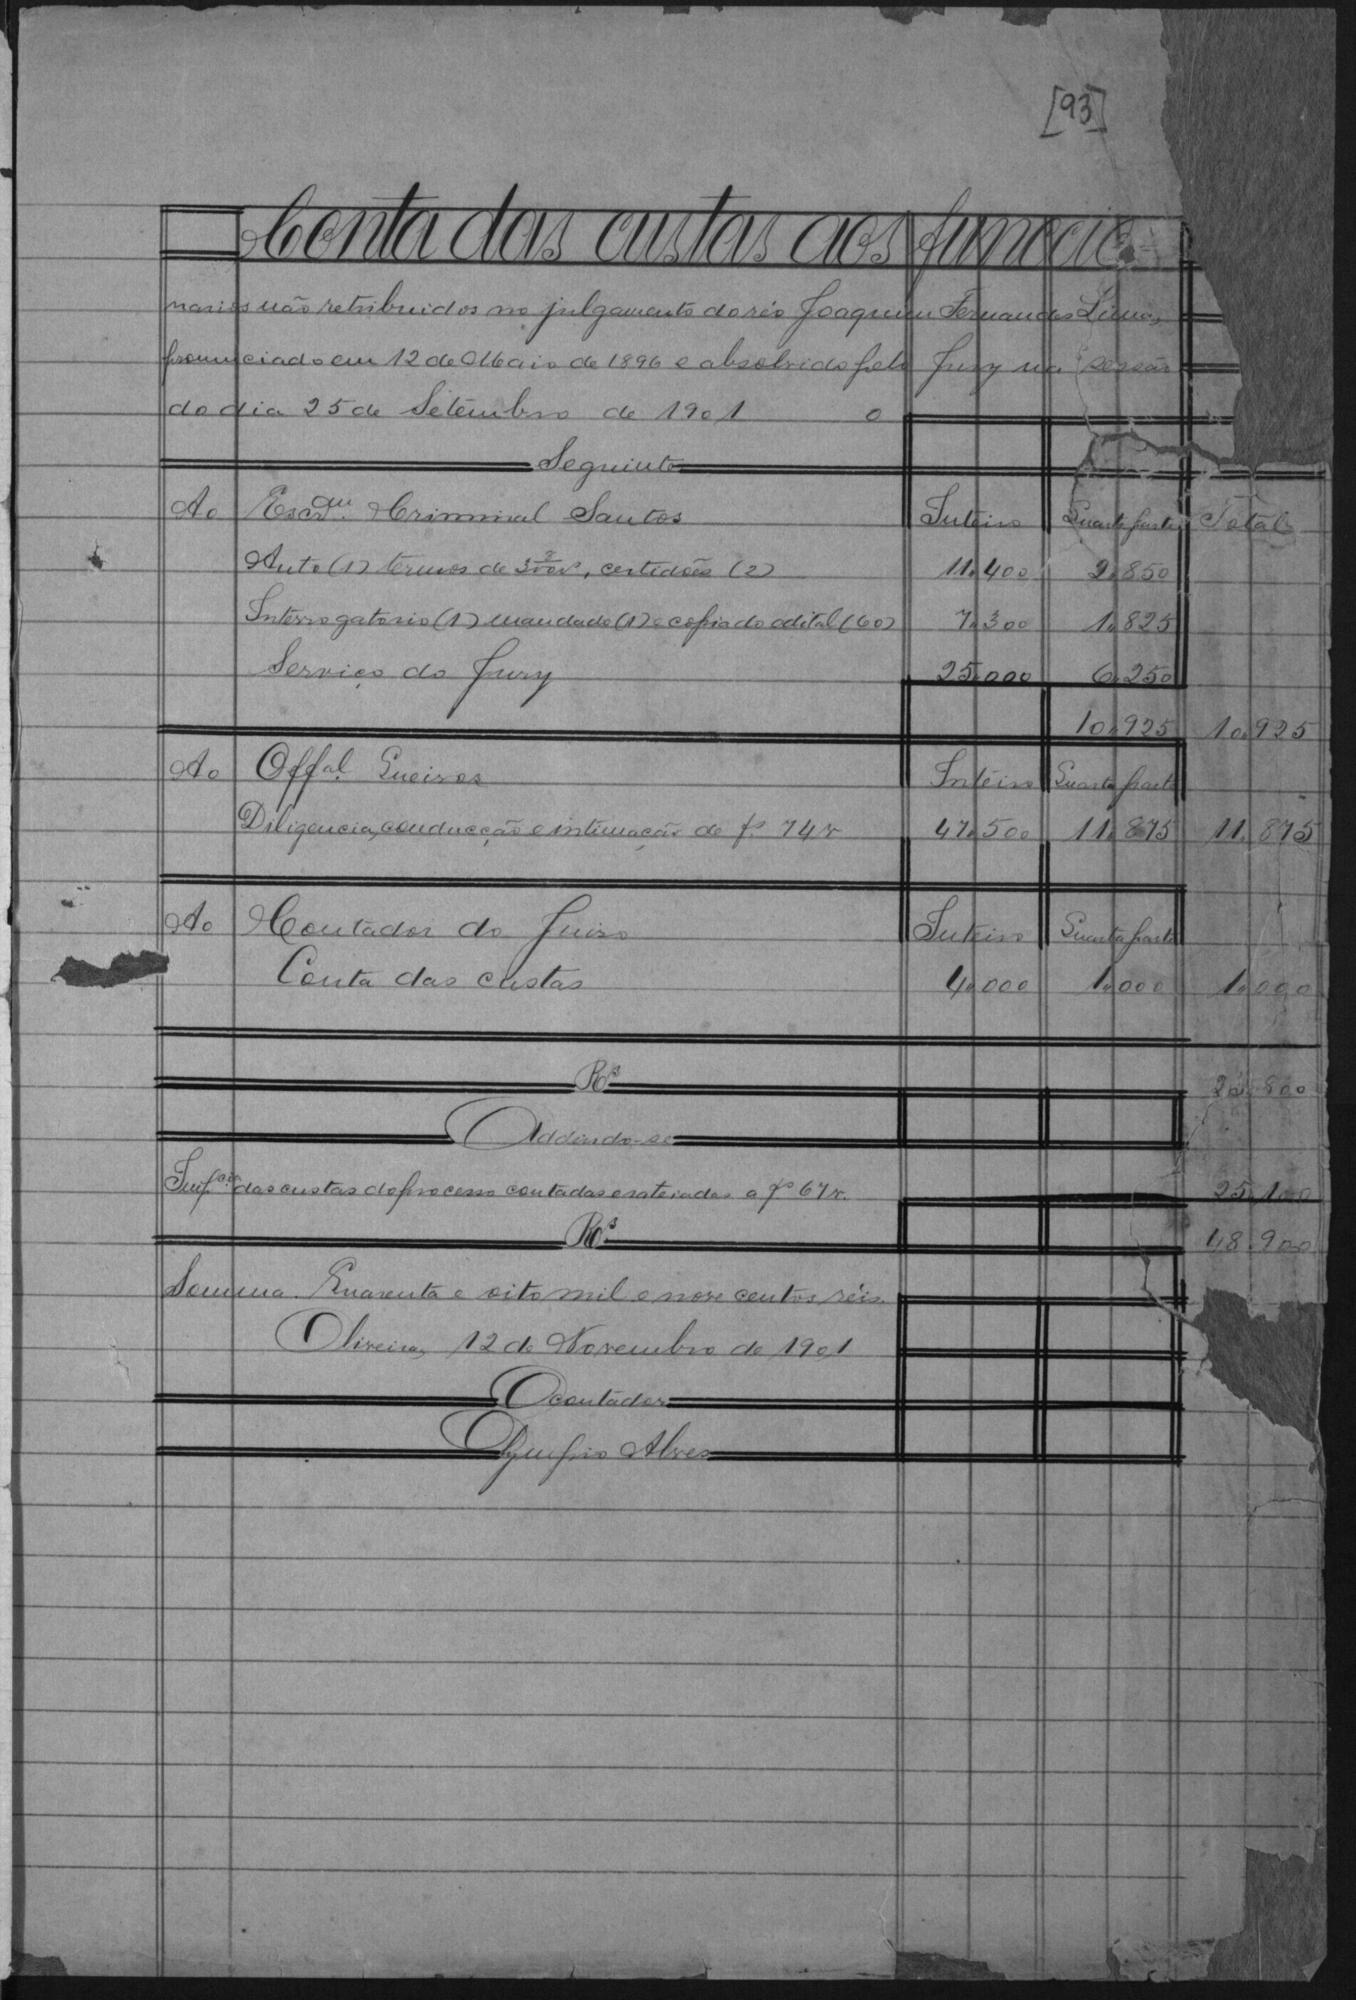 [93]
Conta das custas aos funccio
narios não retribuidos no julgamento do réo Joaquim Fernandes Lima,
pronunciado em 12 de Maio de 1896 e absolvido pelo Jury na sessão
do dia 25 de Setembro de 1901 o
Seguinte
Ao Escr.am Criminal Santos Inteiro Quarta parte Total
Auto (1) termos de, certidões (2) 11.400 2.850
Interrogatorio (1) mandado (1) e copia do edital (60) 7.300 1.825
Serviço do Jury 25.000 6.250
10.925 10.925
Ao Offal. Queiros Inteiro Quarta parte
Diligencia, conducção e intimação de fs 74 v 47.500 11.875 11.875
Ao Contador do Juizo Inteiro Quarta parte
Conta das custas 4.000 1.000 1.000
Rs 23.800
Addindo-se
das custas do processo contadas e rateiadas a fs 67 v. 25.100
Rs 48.900
Somma. Quarenta e oito mil e nove centos réis.
Oliveira, 12 de Novembro de 1901
O contador
Olympio Alves